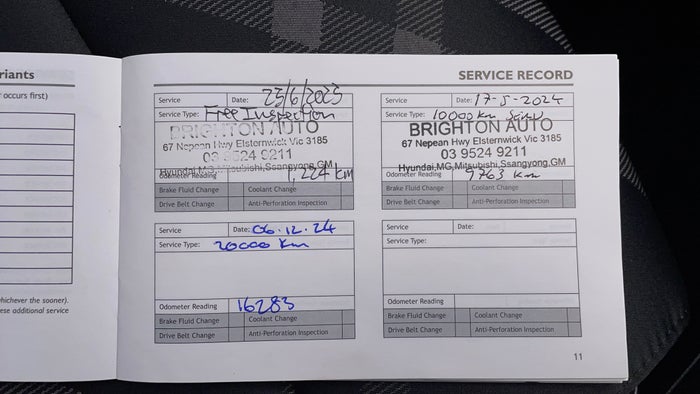 riants
occurs first)
hichever the sooner).
ese additional service
SERVICE RECORD
Service Date: 23/6/2023
Service Type: Free Inspection
BRIGHTON AUTO
67 Nepean Hwy Elsternwick Vic 3185
03 9524 9211
Hyundai,MG,Mitsubishi,Ssangyong,GM
Odometer Reading 1,224 km
Brake Fluid Change Coolant Change
Drive Belt Change Anti-Perforation Inspection
Service Date: 17-5-2024
Service Type: 10000 km
BRIGHTON AUTO
67 Nepean Hwy Elsternwick Vic 3185
03 9524 9211
Hyundai,MG,Mitsubishi,Ssangyong,GM
Odometer Reading 9763 km
Brake Fluid Change Coolant Change
Drive Belt Change Anti-Perforation Inspection
Service Date: 06.12.24
Service Type: 20000 Km
Odometer Reading 16283
Brake Fluid Change Coolant Change
Drive Belt Change Anti-Perforation Inspection
Service Date:
Service Type:
Odometer Reading
Brake Fluid Change Coolant Change
Drive Belt Change Anti-Perforation Inspection
11